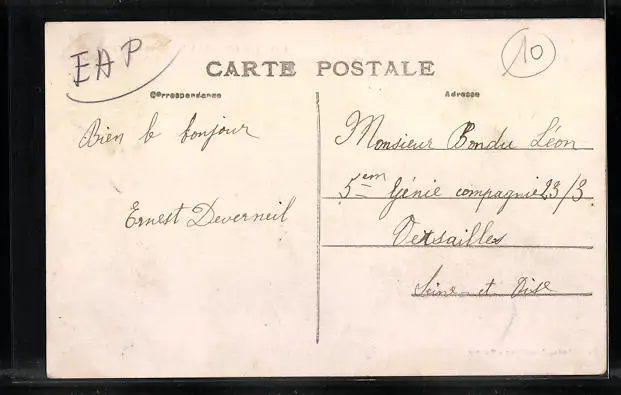 EAP
10
CARTE POSTALE
Correspondance
Adresse
Bien le bonjour
Ernest Deverneil
Monsieur Bondu Léon
5em Génie compagnie 23/3
Versailles
Seine et Oise